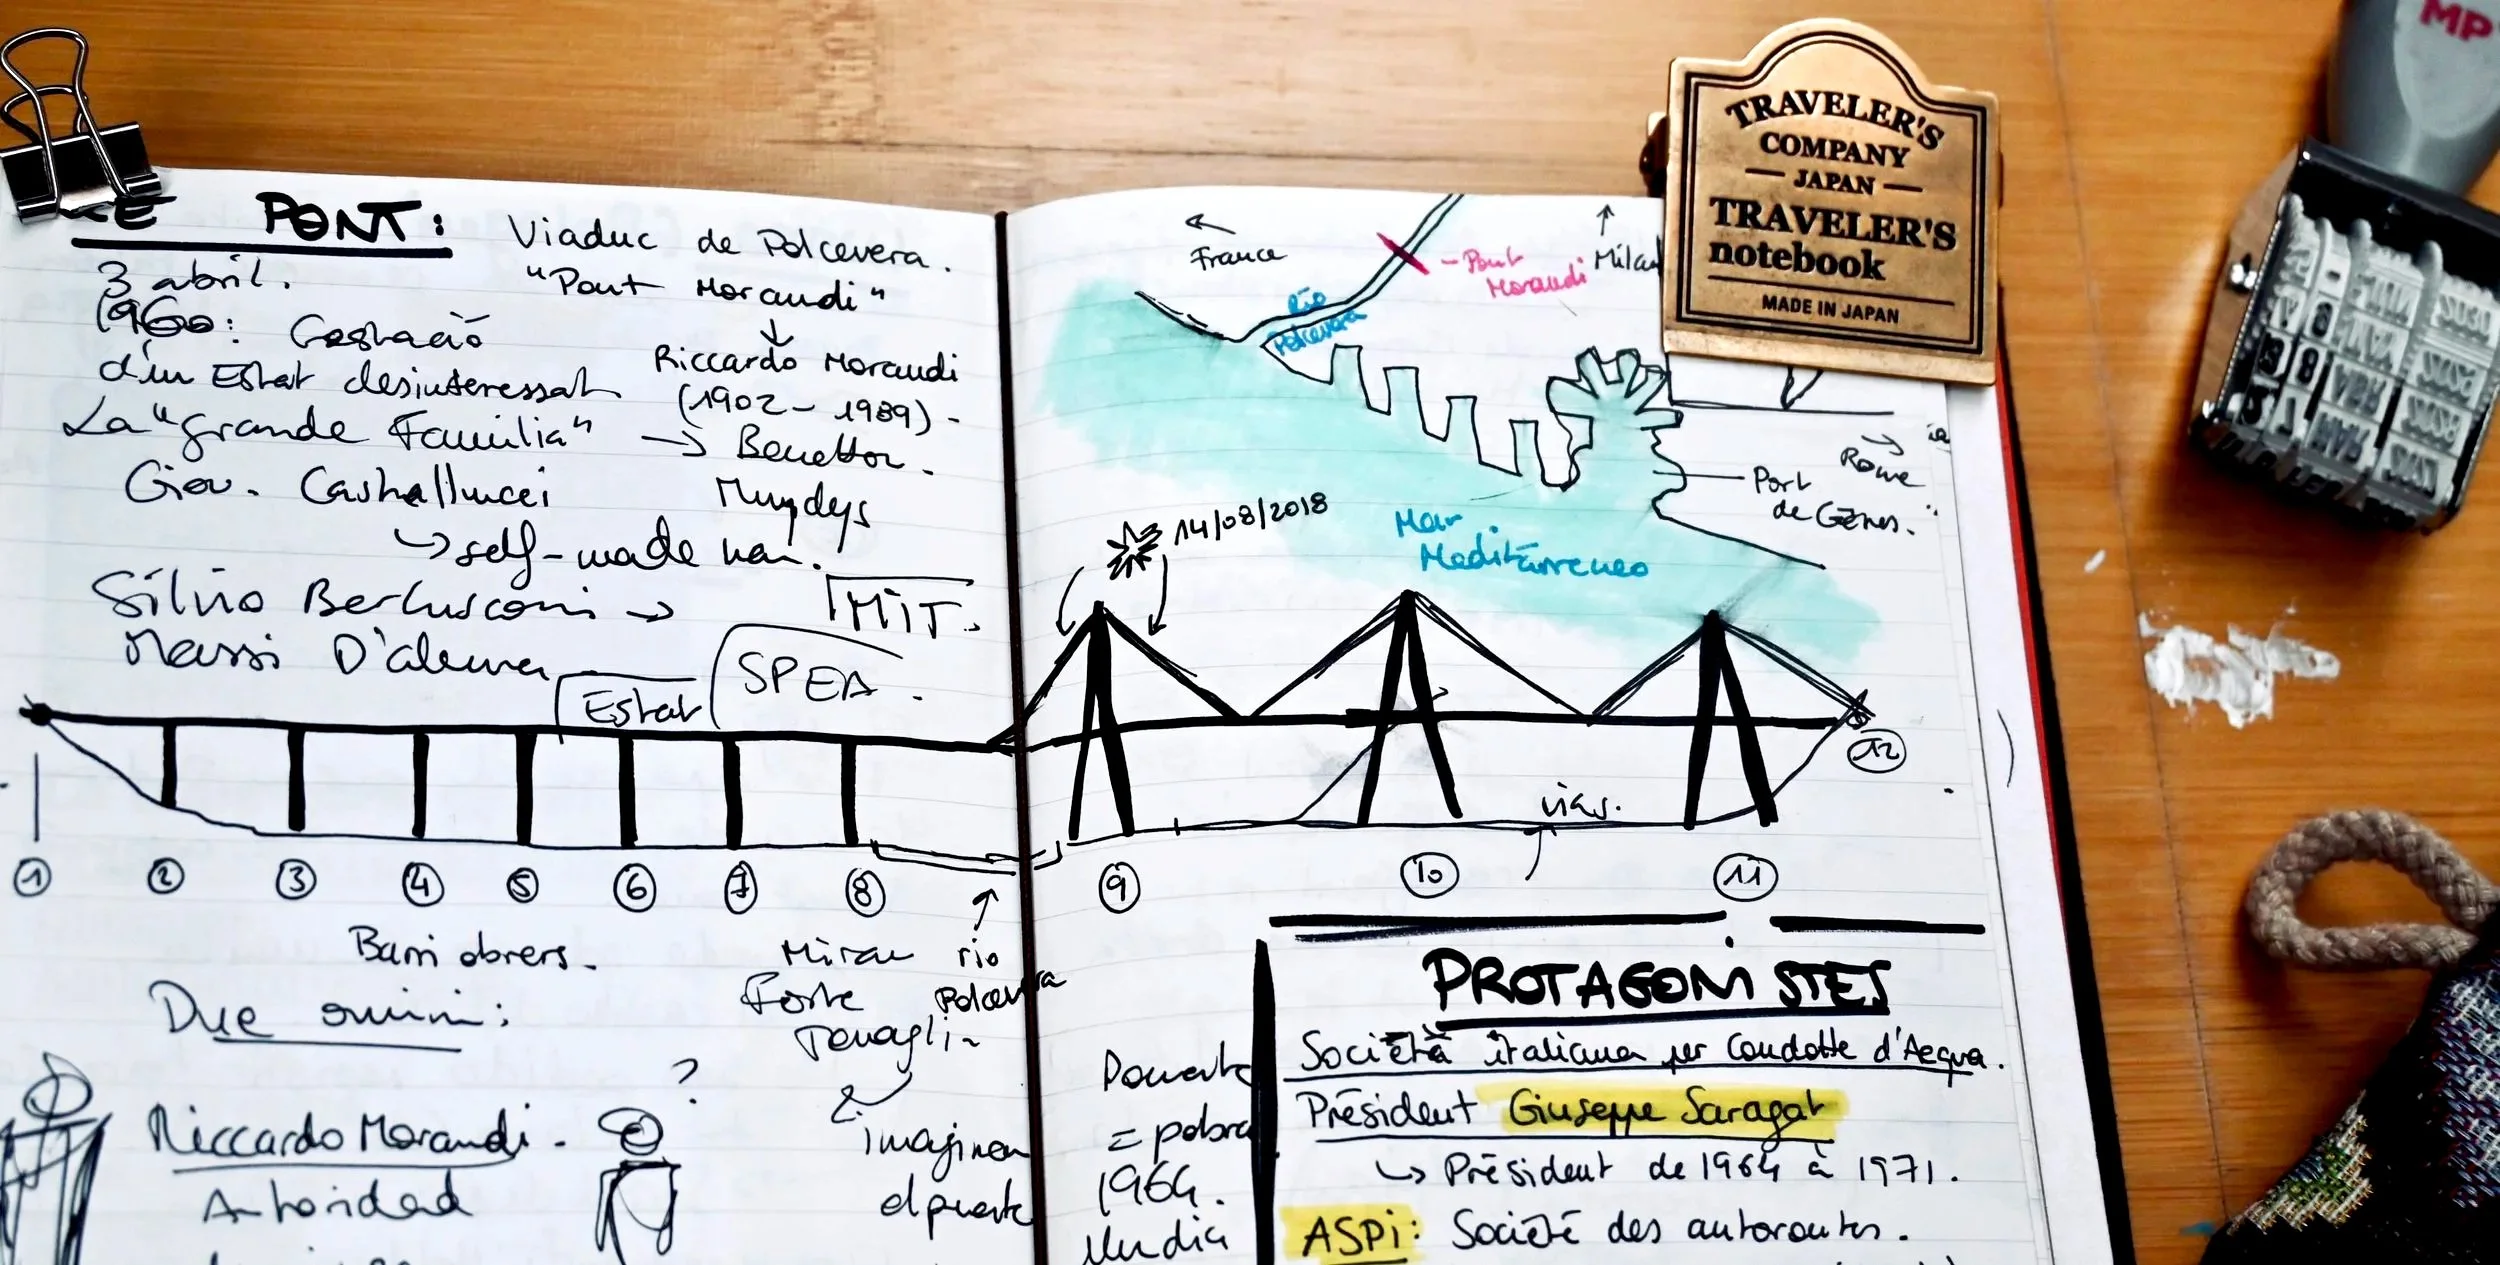 LE PONT:
Viaduc de Polcevera.
"Pont Morandi"
Riccardo Morandi
(1902-1989)-
3 abril.
1960: Gestació
d'un Estat desinteressat
La "grande Familia" → Benetton.
Giov. Castellucci
Mundys
↳ self-made man.
Silvio Berlusconi →
MIT.
Massi D'alema
Estat
SPEA.
1
2
3
4
5
6
7
8
Barri obrers.
Miran
Forte
Tenagli-
rio
Polcevera
Due uomini:
Riccardo Morandi-
Autoridad
?
imaginen
el puente
France
Pont
Morandi
Milan
Rio
Polcevera
Rome
Port
de Gênes.
Mar
Mediterreneo
14/08/2018
vias.
9
10
11
12
1964.
PROTAGONISTES
Società italiana per Condotte d'Acqua.
Président Giuseppe Saragat
↳ Président de 1964 à 1971.
ASPi: Société des autoroutes.
TRAVELER'S
COMPANY
JAPAN
TRAVELER'S
notebook
MADE IN JAPAN
MP